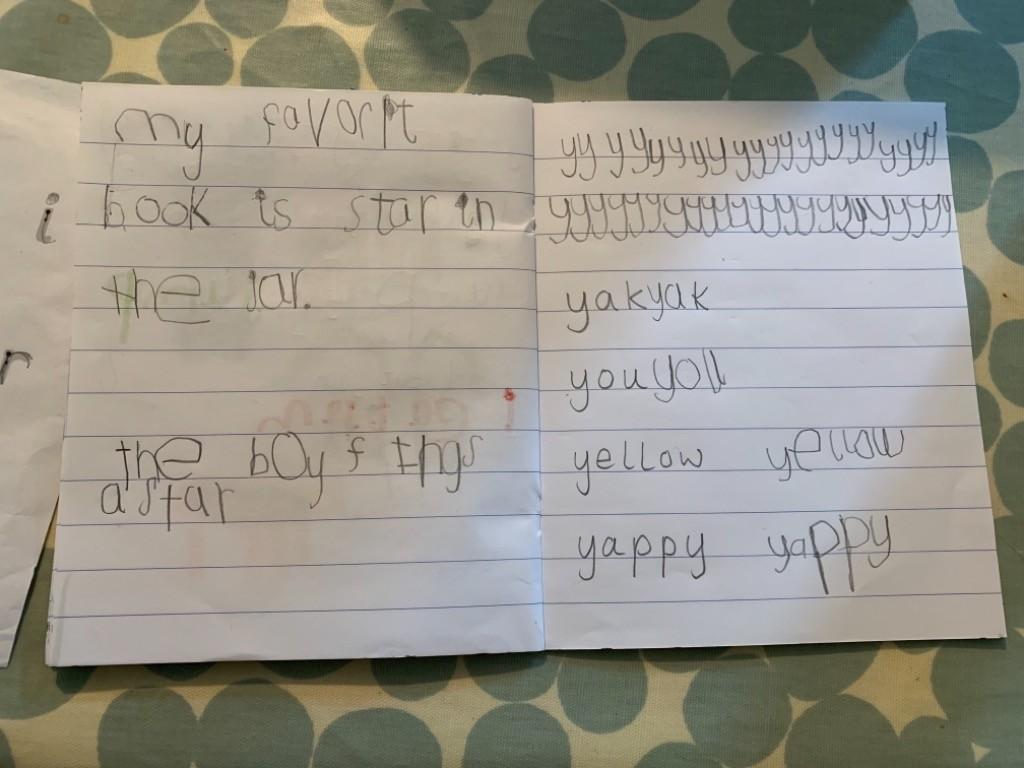 i
r
my favorit
book is star in
the jar.
the boy f
a star
yy yyyyyy yyyyyyyyy yyyy
yyyyyyyyyyyyyyyyyyyyyy
yakyak
youyou
yellow yellow
yappy yappy